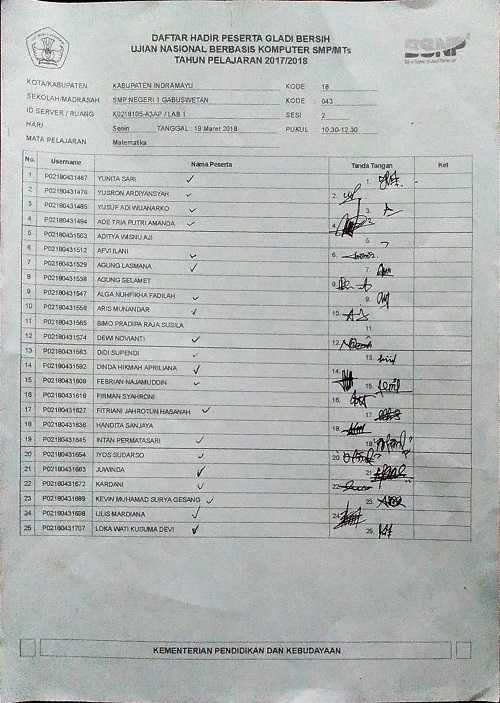 DAFTAR HADIR PESERTA GLADI BERSIH
UJIAN NASIONAL BERBASIS KOMPUTER SMP/MTs
TAHUN PELAJARAN 2017/2018
BSNP
KOTA/KABUPATEN KABUPATEN INDRAMAYU KODE 18
SEKOLAH/MADRASAH SMP NEGERI 1 GABUSWETAN KODE 043
ID SERVER / RUANG K0218105-A3AP / LAB 1 SESI 2
HARI Senin TANGGAL : 19 Maret 2018 PUKUL 10.30-12.30
MATA PELAJARAN Matematika
No. Username Nama Peserta Tanda Tangan Ket
1 P02180431467 YUNITA SARI 1.
2 P02180431476 YUSRON ARDIYANSYAH 2.
3 P02180431485 YUSUF ADI WIJANARKO 3.
4 P02180431494 ADE TRIA PUTRI AMANDA 4.
5 P02180431503 ADITYA WISNU AJI 5.
6 P02180431512 AFVI ILANI 6.
7 P02180431529 AGUNG LASMANA 7.
8 P02180431538 AGUNG SELAMET 8.
9 P02180431547 ALGA NUHFIKHA FADILAH 9.
10 P02180431556 ARIS MUNANDAR 10.
11 P02180431565 BIMO PRADIPA RAJA SUSILA 11.
12 P02180431574 DEWI NOVIANTI 12.
13 P02180431583 DIDI SUPENDI 13.
14 P02180431592 DINDA HIKMAH APRILIANA 14.
15 P02180431609 FEBRIAN NAJAMUDDIN 15.
16 P02180431618 FIRMAN SYAHRONI 16.
17 P02180431627 FITRIANI JAHROTUN HASANAH 17.
18 P02180431636 HANDITA SANJAYA 18.
19 P02180431645 INTAN PERMATASARI 19.
20 P02180431654 IYOS SUDARSO 20.
21 P02180431663 JUWINDA 21.
22 P02180431672 KARDANI 22.
23 P02180431689 KEVIN MUHAMAD SURYA GESANG 23.
24 P02180431698 LILIS MARDIANA 24.
25 P02180431707 LOKA WATI KUSUMA DEVI 25.
KEMENTERIAN PENDIDIKAN DAN KEBUDAYAAN